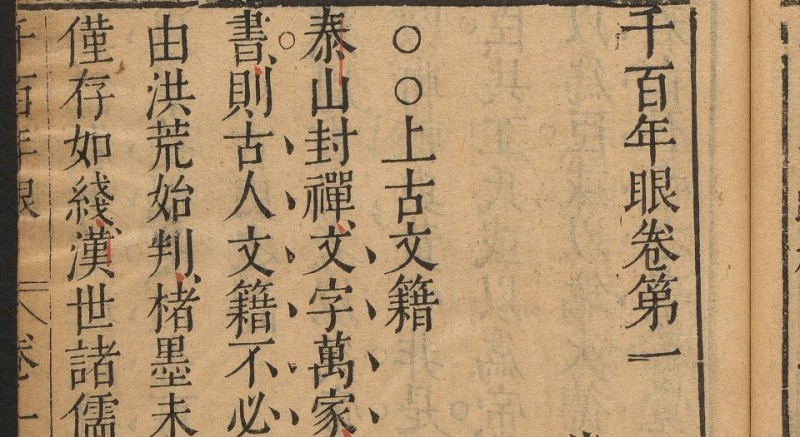 千百年眼卷第一
○○上古文籍
泰山封禪、文字萬家
書、則古人文籍不必
由洪荒始判、楮墨未
僅存如綫、漢世諸儒
千百年眼 卷一